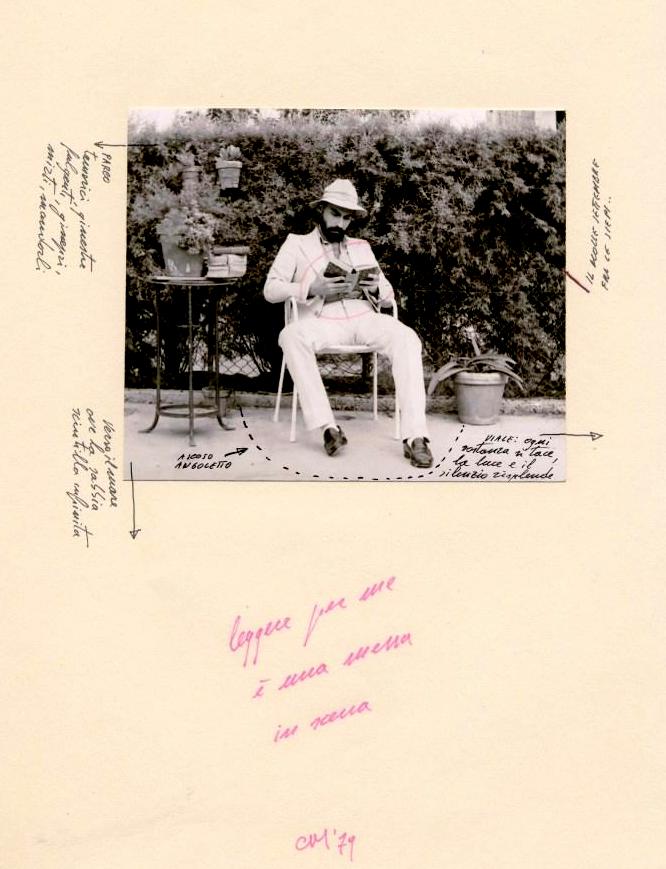 PARCO
tamerici ginestre
fulgenti, ginepri,
mirti, mandorli
IL MOLLE SETTEMBRE
FRA LE SIEPI..
Verso il mare
ove la sabbia
scintilla infinita
ASCOSO
ANGOLETTO
VIALE: ogni
sostanza si tace,
la luce e il
silenzio risplende
leggere per me
è una messa
in scena
'79